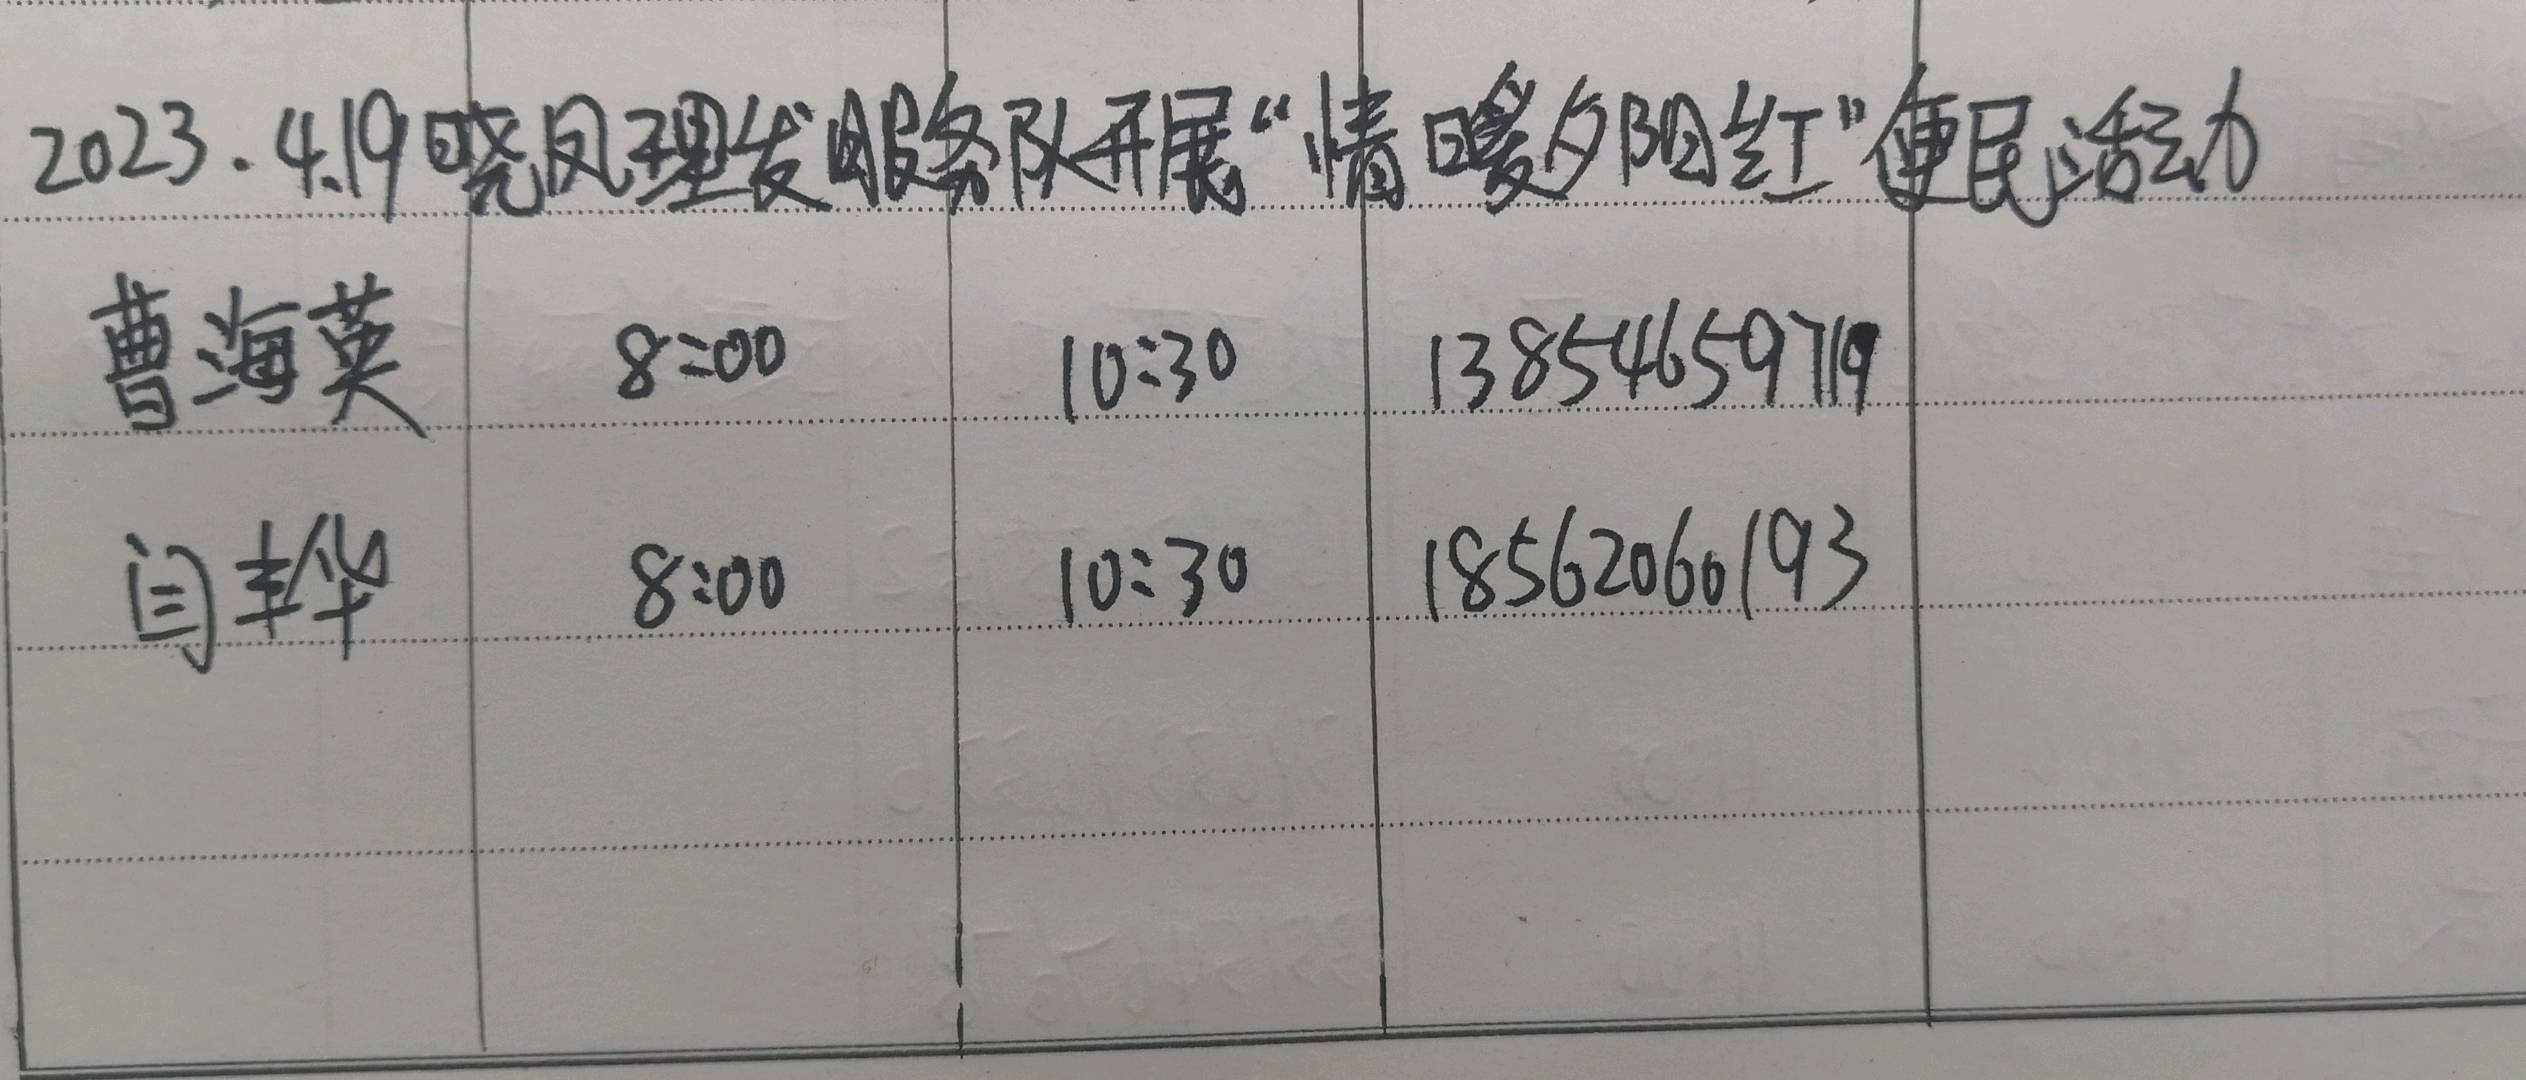 2023.4.19晓凤理发服务队开展“情暖夕阳红”便民活动
曹海英 8:00 10:30 13854659719
闫丰华 8:00 10:30 18562060193